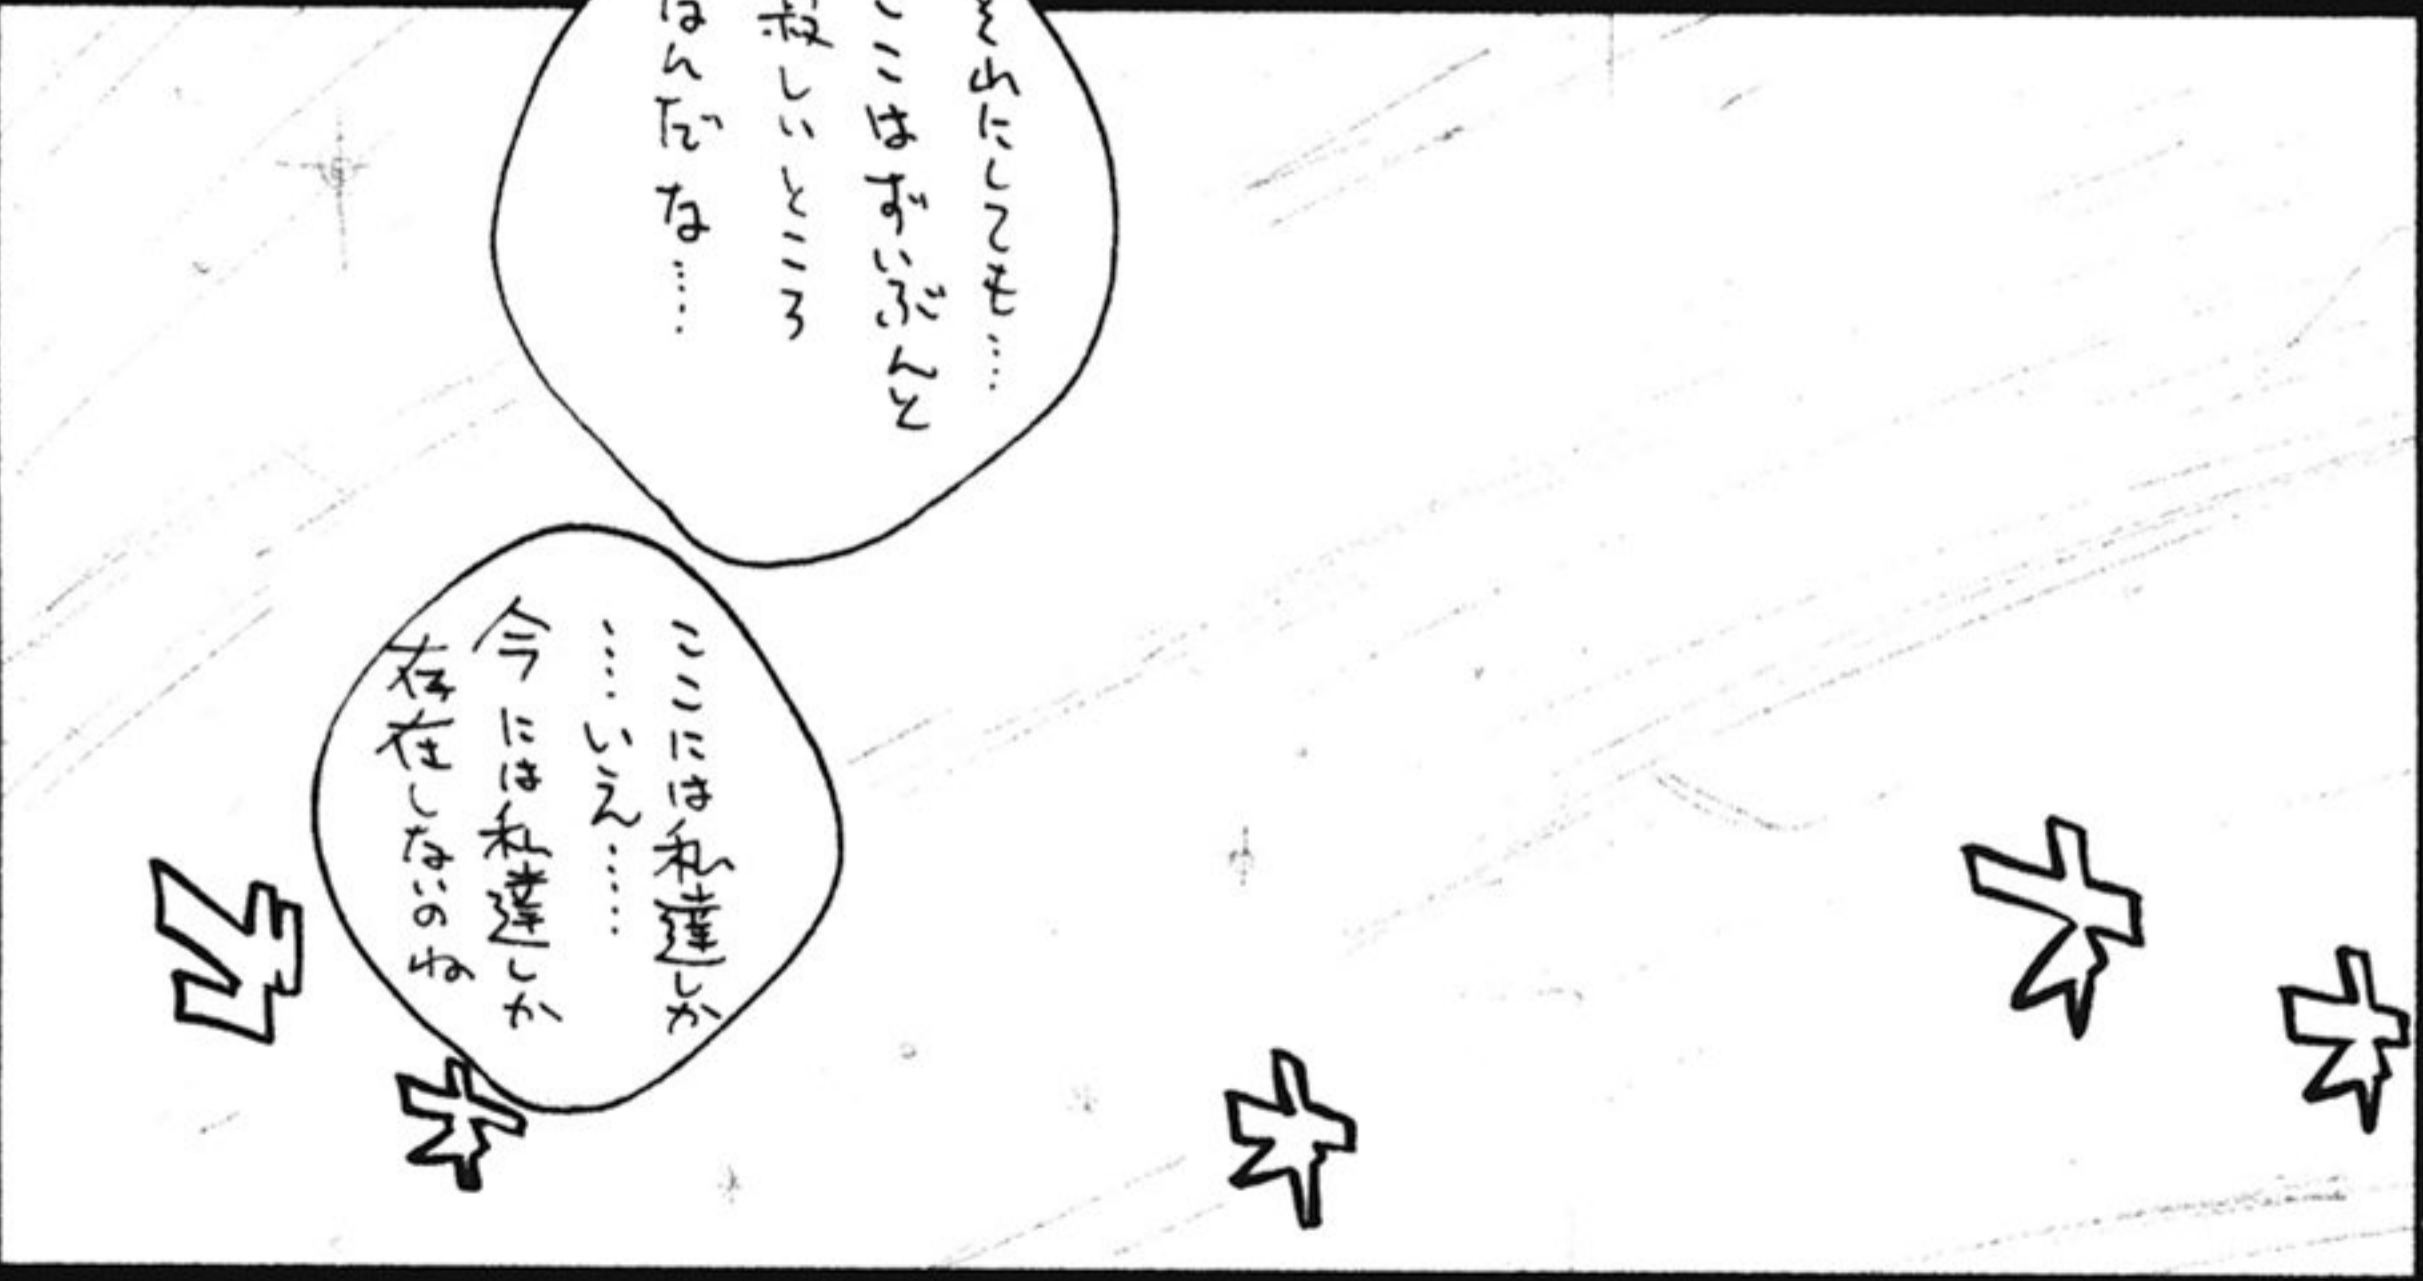 それにしても……
ここはずいぶんと
寂しいところ
なんだな……
ここには私達しか
……いえ……
今には私達しか
存在しないのね